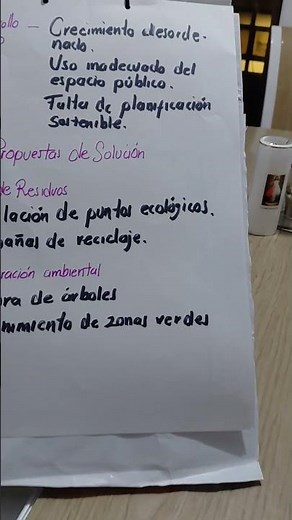 ollo – Crecimiento desorde-
nado.
Uso inadecuado del
espacio público.
Falta de planificación
Sostenible.
ropuestas de Solución
de Residuos
lación de puntos ecológicos.
pañas de reciclaje.
ración ambiental
ra de árboles
nimiento de zonas verdes